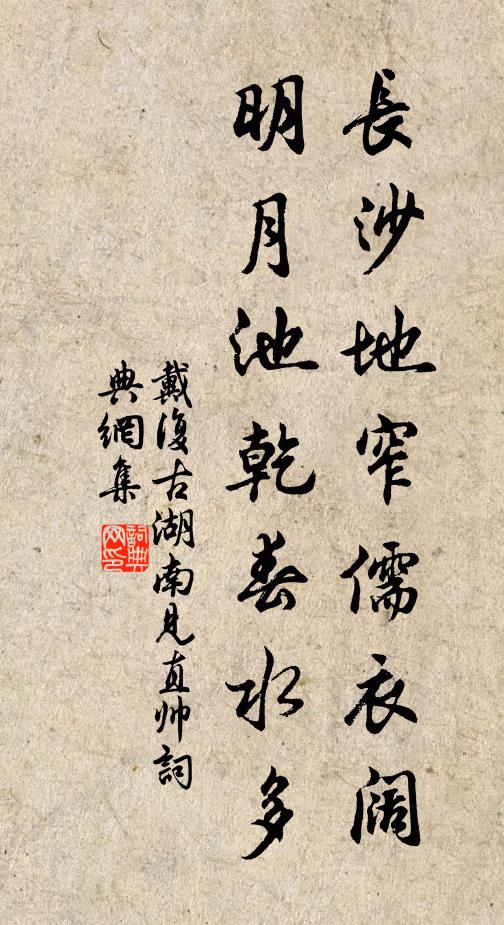 長沙地窄儒衣闊
明月池乾春水多
戴復古湖南見真帥詞
典網集
詞典網印